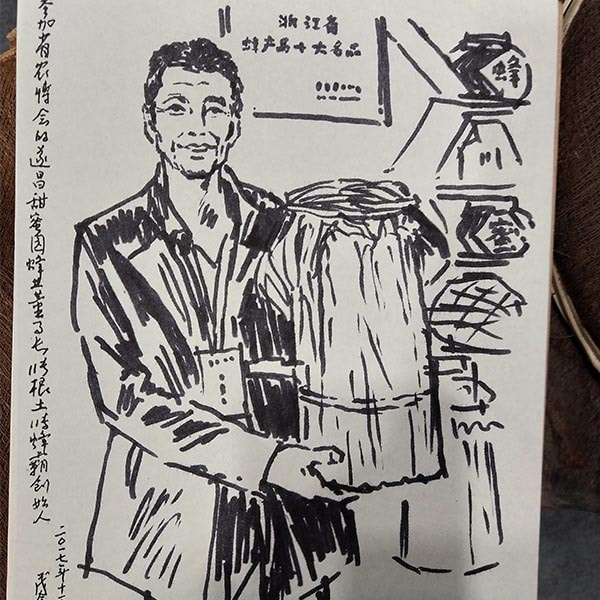 浙江省
蜂产品十大名品
蜂
蜜
参加省农博会的遂昌甜蜜园蜂业董事长张根土张蜂霸创始人
二〇一七年十一